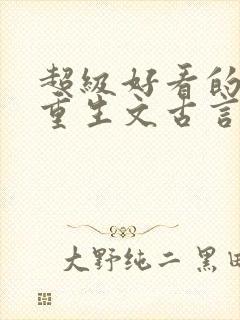 超级好看的
重生文古言
大野纯二 黑田